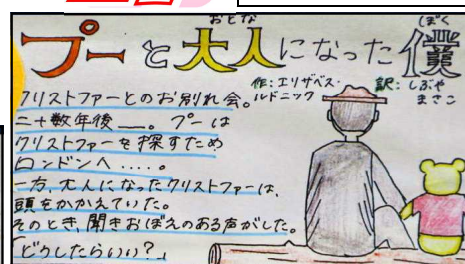 プーと大人になった僕
おとな
ぼく
作：エリザベス・
ルドニック
訳：しぶや
まさこ
クリストファーとのお別れ会。
二十数年後――。プーは
クリストファーを探すため
ロンドンへ....。
一方、大人になったクリストファーは、
頭をかかえていた。
そのとき、聞きおぼえのある声がした。
「どうしたらいい？」